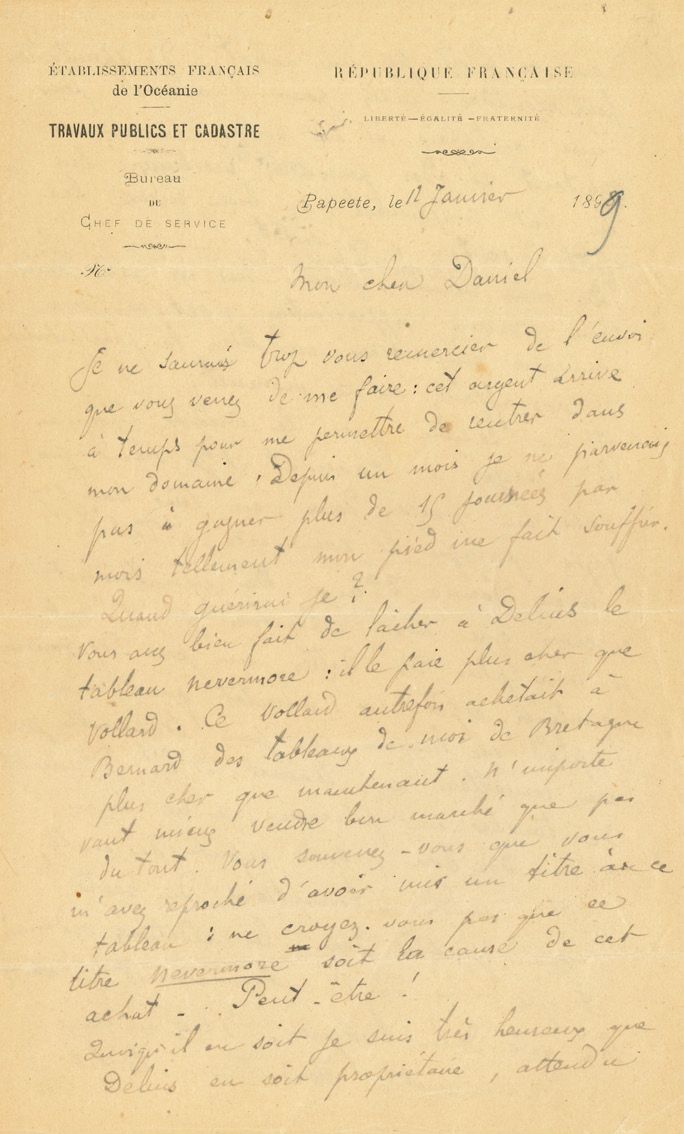 ÉTABLISSEMENTS FRANÇAIS
de l'Océanie
TRAVAUX PUBLICS ET CADASTRE
Bureau
DU
CHEF DE SERVICE
No
RÉPUBLIQUE FRANÇAISE
LIBERTÉ—ÉGALITÉ—FRATERNITÉ
Papeete, le 12 Janvier 1899.
Mon cher Daniel
Je ne saurais trop vous remercier de l'envoi
que vous venez de me faire : cet argent arrive
à temps pour me permettre de rentrer dans
mon domaine. Depuis un mois je ne parvenais
pas à gagner plus de 15 journées par
mois tellement mon pied me fait souffrir.
Quand guérirai je ?
Vous avez bien fait de lâcher à Delius le
tableau nevermore : il le paie plus cher que
Vollard. Ce Vollard autrefois achetait à
Bernard des tableaux de moi de Bretagne
plus cher que maintenant. N'importe
vaut mieux vendre bon marché que pas
du tout. Vous souvenez-vous que vous
m'avez reproché d'avoir mis un titre à ce
tableau : ne croyez-vous pas que ce
titre nevermore soit la cause de cet
achat - . Peut-être !
Quoiqu'il en soit je suis très heureux que
Delius en soit propriétaire, attendu